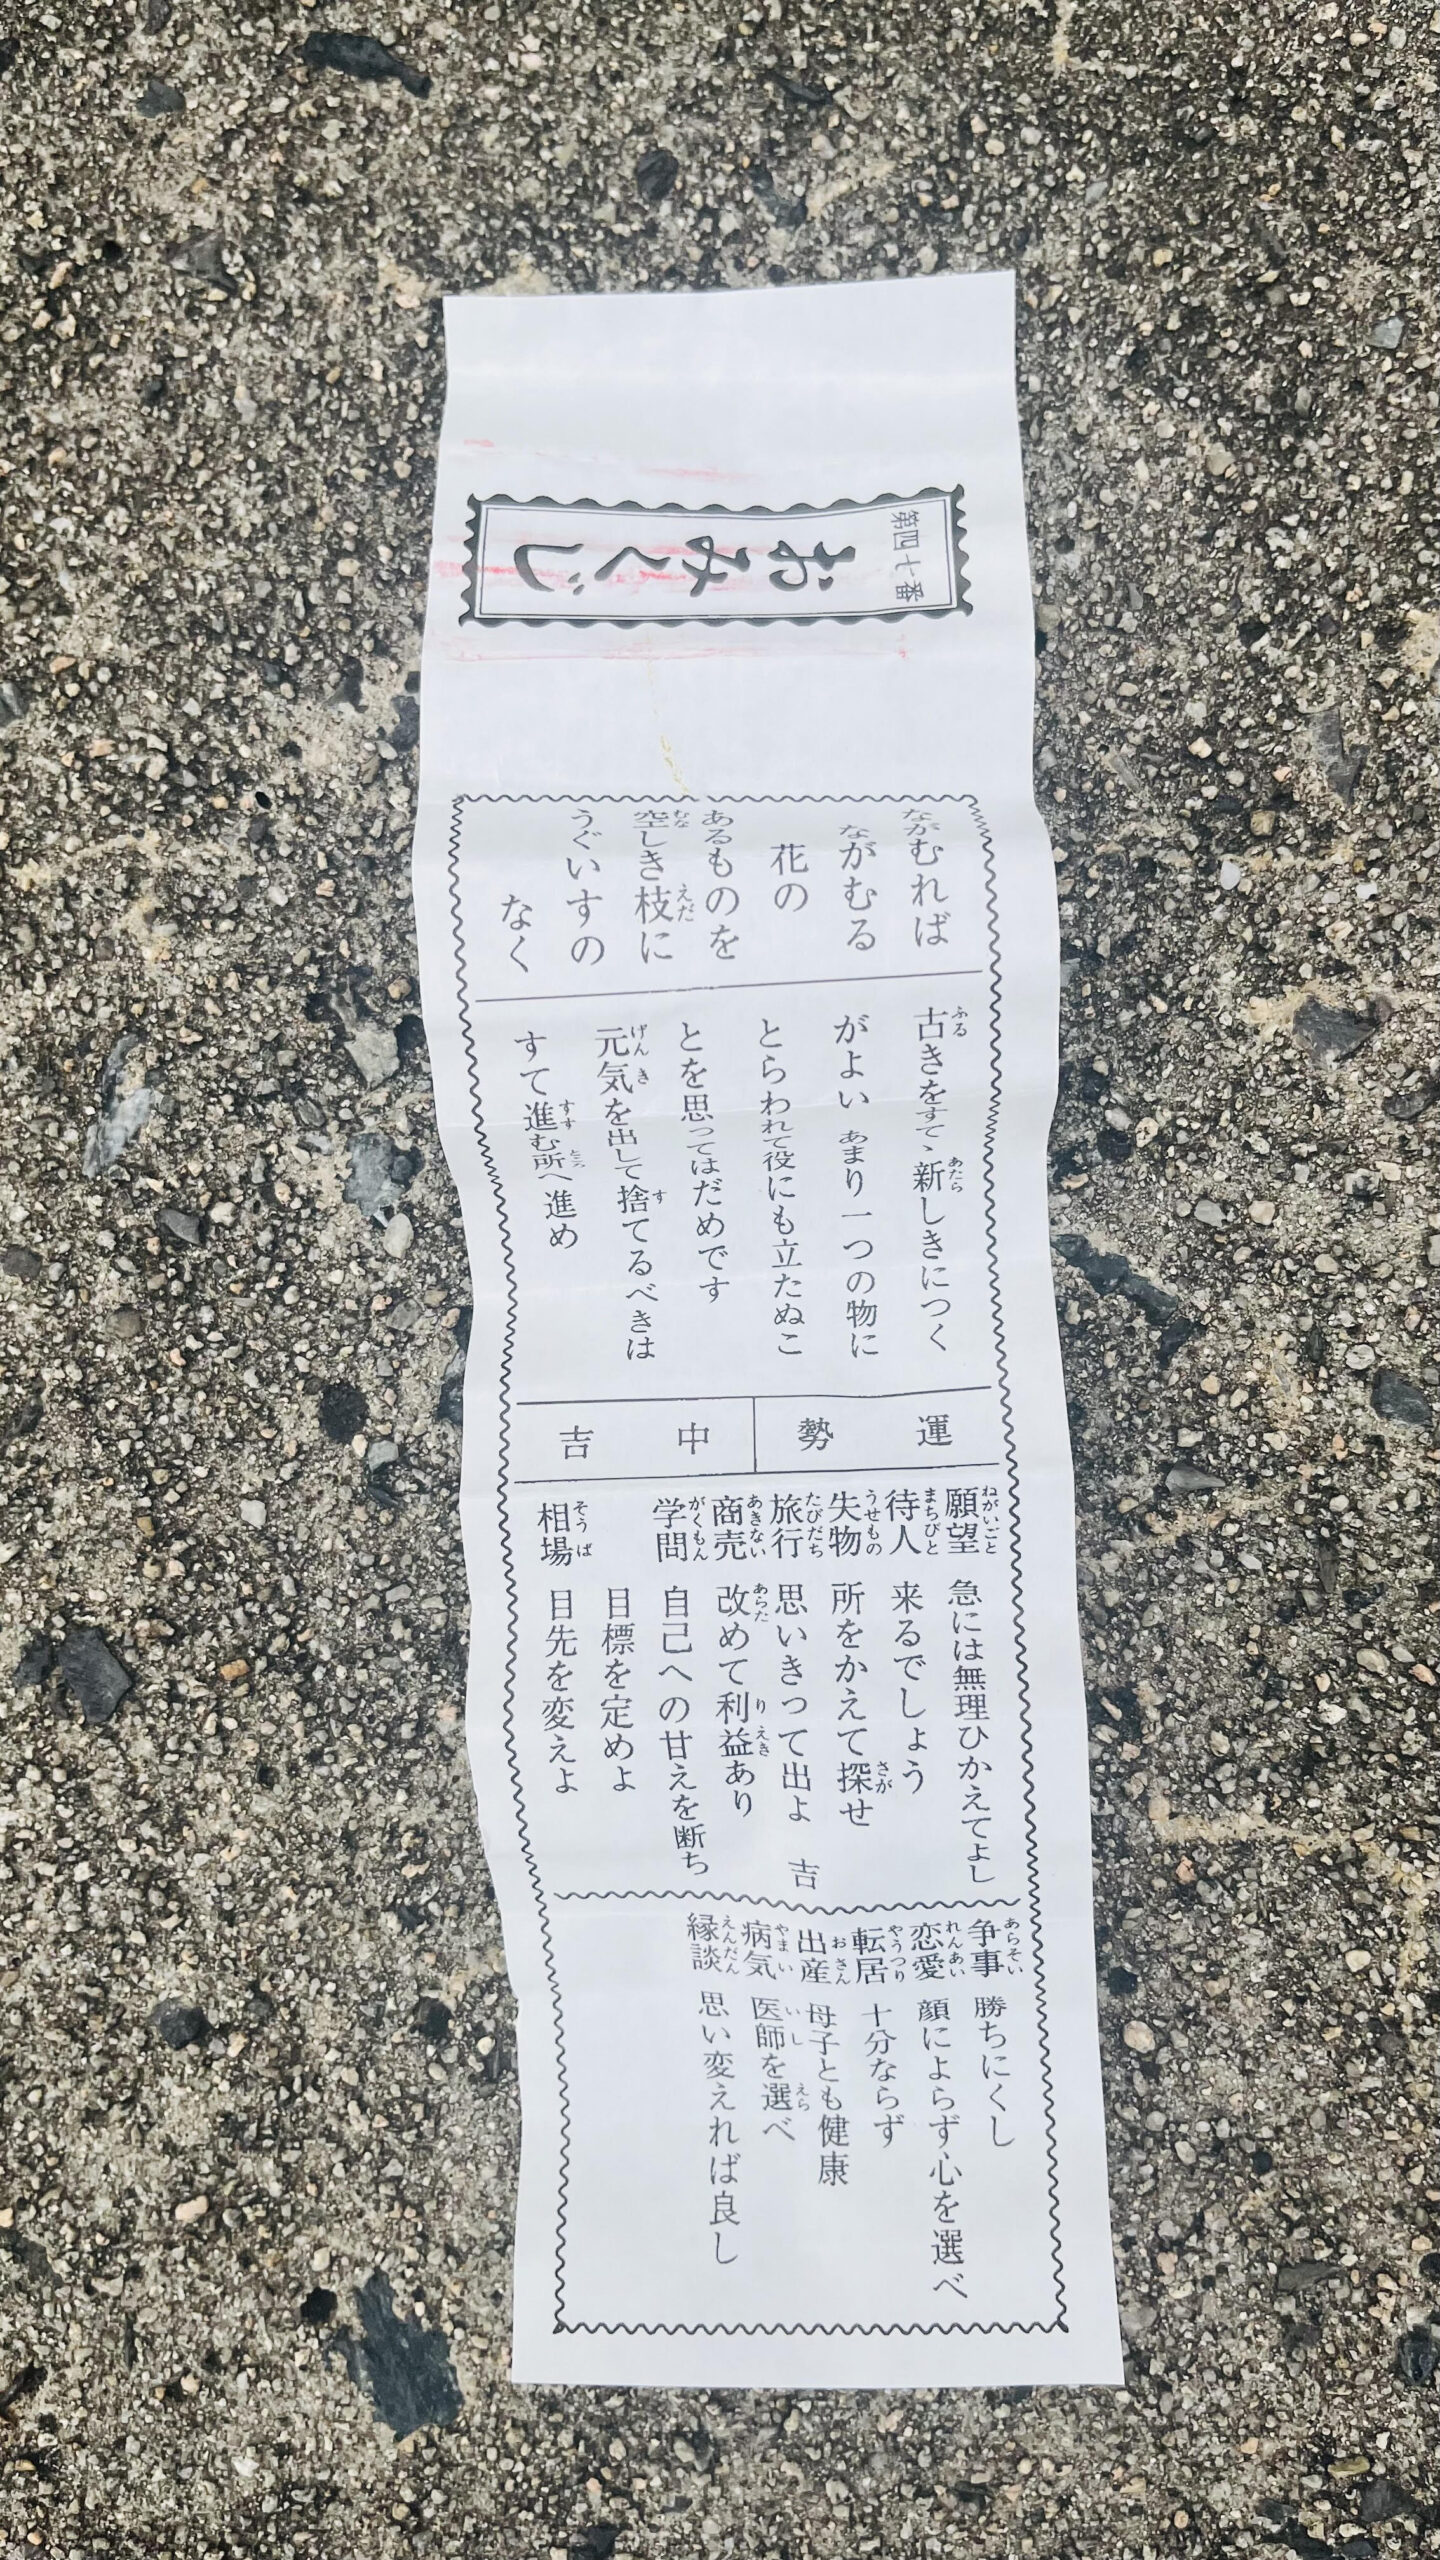 第四十番
おみくじ
ながむれば
ながむる
花の
あるものを
空しき枝に
うぐいすの
なく
古きをすて、新しきにつく
がよい あまり一つの物に
とらわれて役にも立たぬこ
とを思ってはだめです
元気を出して捨てるべきは
すて進む所へ進め
運勢 中吉
願望 急には無理ひかえてよし
待人 来るでしょう
失物 所をかえて探せ
旅行 思いきって出よ 吉
商売 改めて利益あり
学問 自己への甘えを断ち
目標を定めよ
相場 目先を変えよ
争事 勝ちにくし
恋愛 顔によらず心を選べ
転居 十分ならず
出産 母子とも健康
病気 医師を選べ
縁談 思い変えれば良し